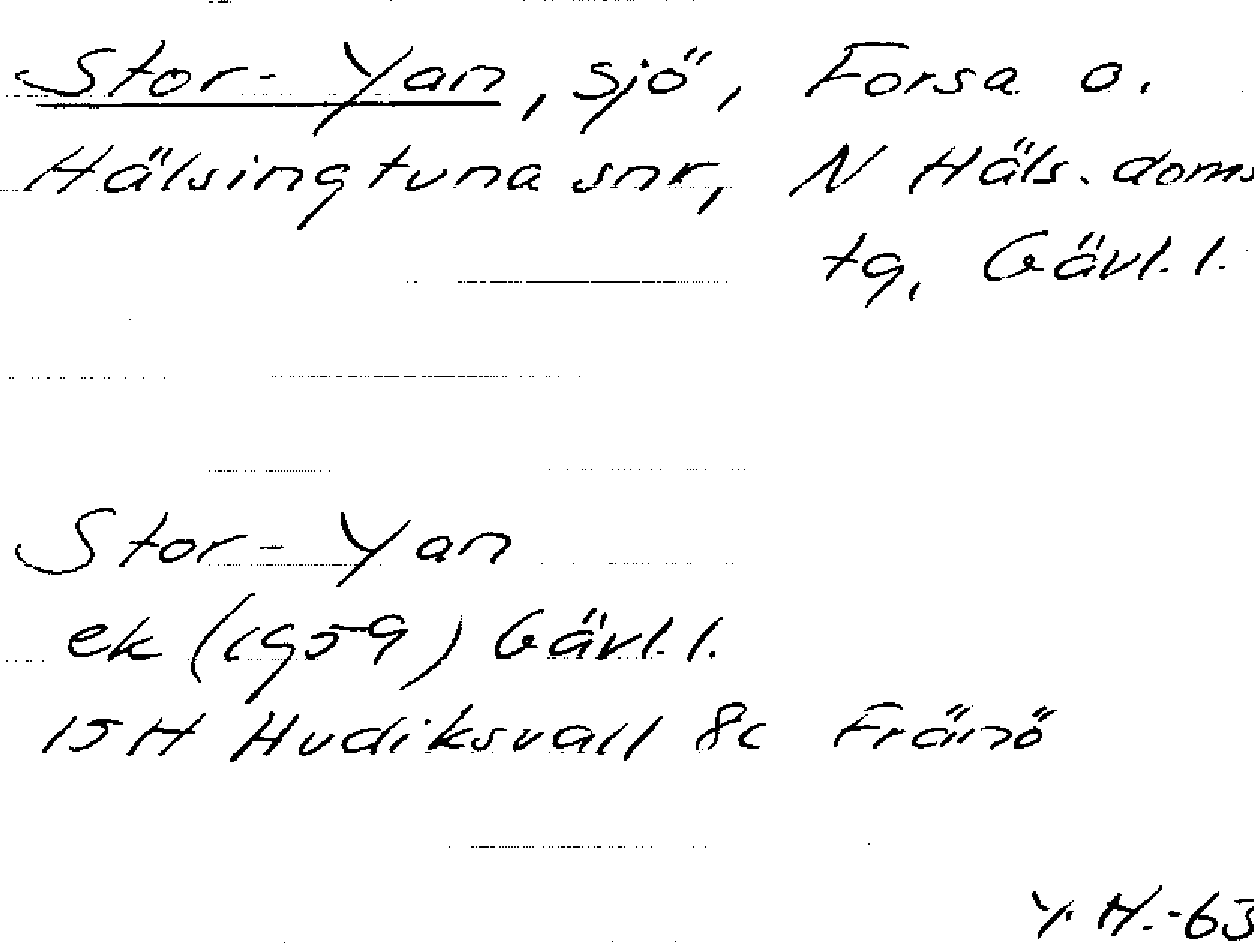 Stor-Yan, sjö, Forsa o.
Hälsingtuna snr, N Häls. doms
tg, Gävl. l.
Stor-Yan
ek (1959) Gävl. l.
15H Hudiksvall 8c Främö
Y. H.-63